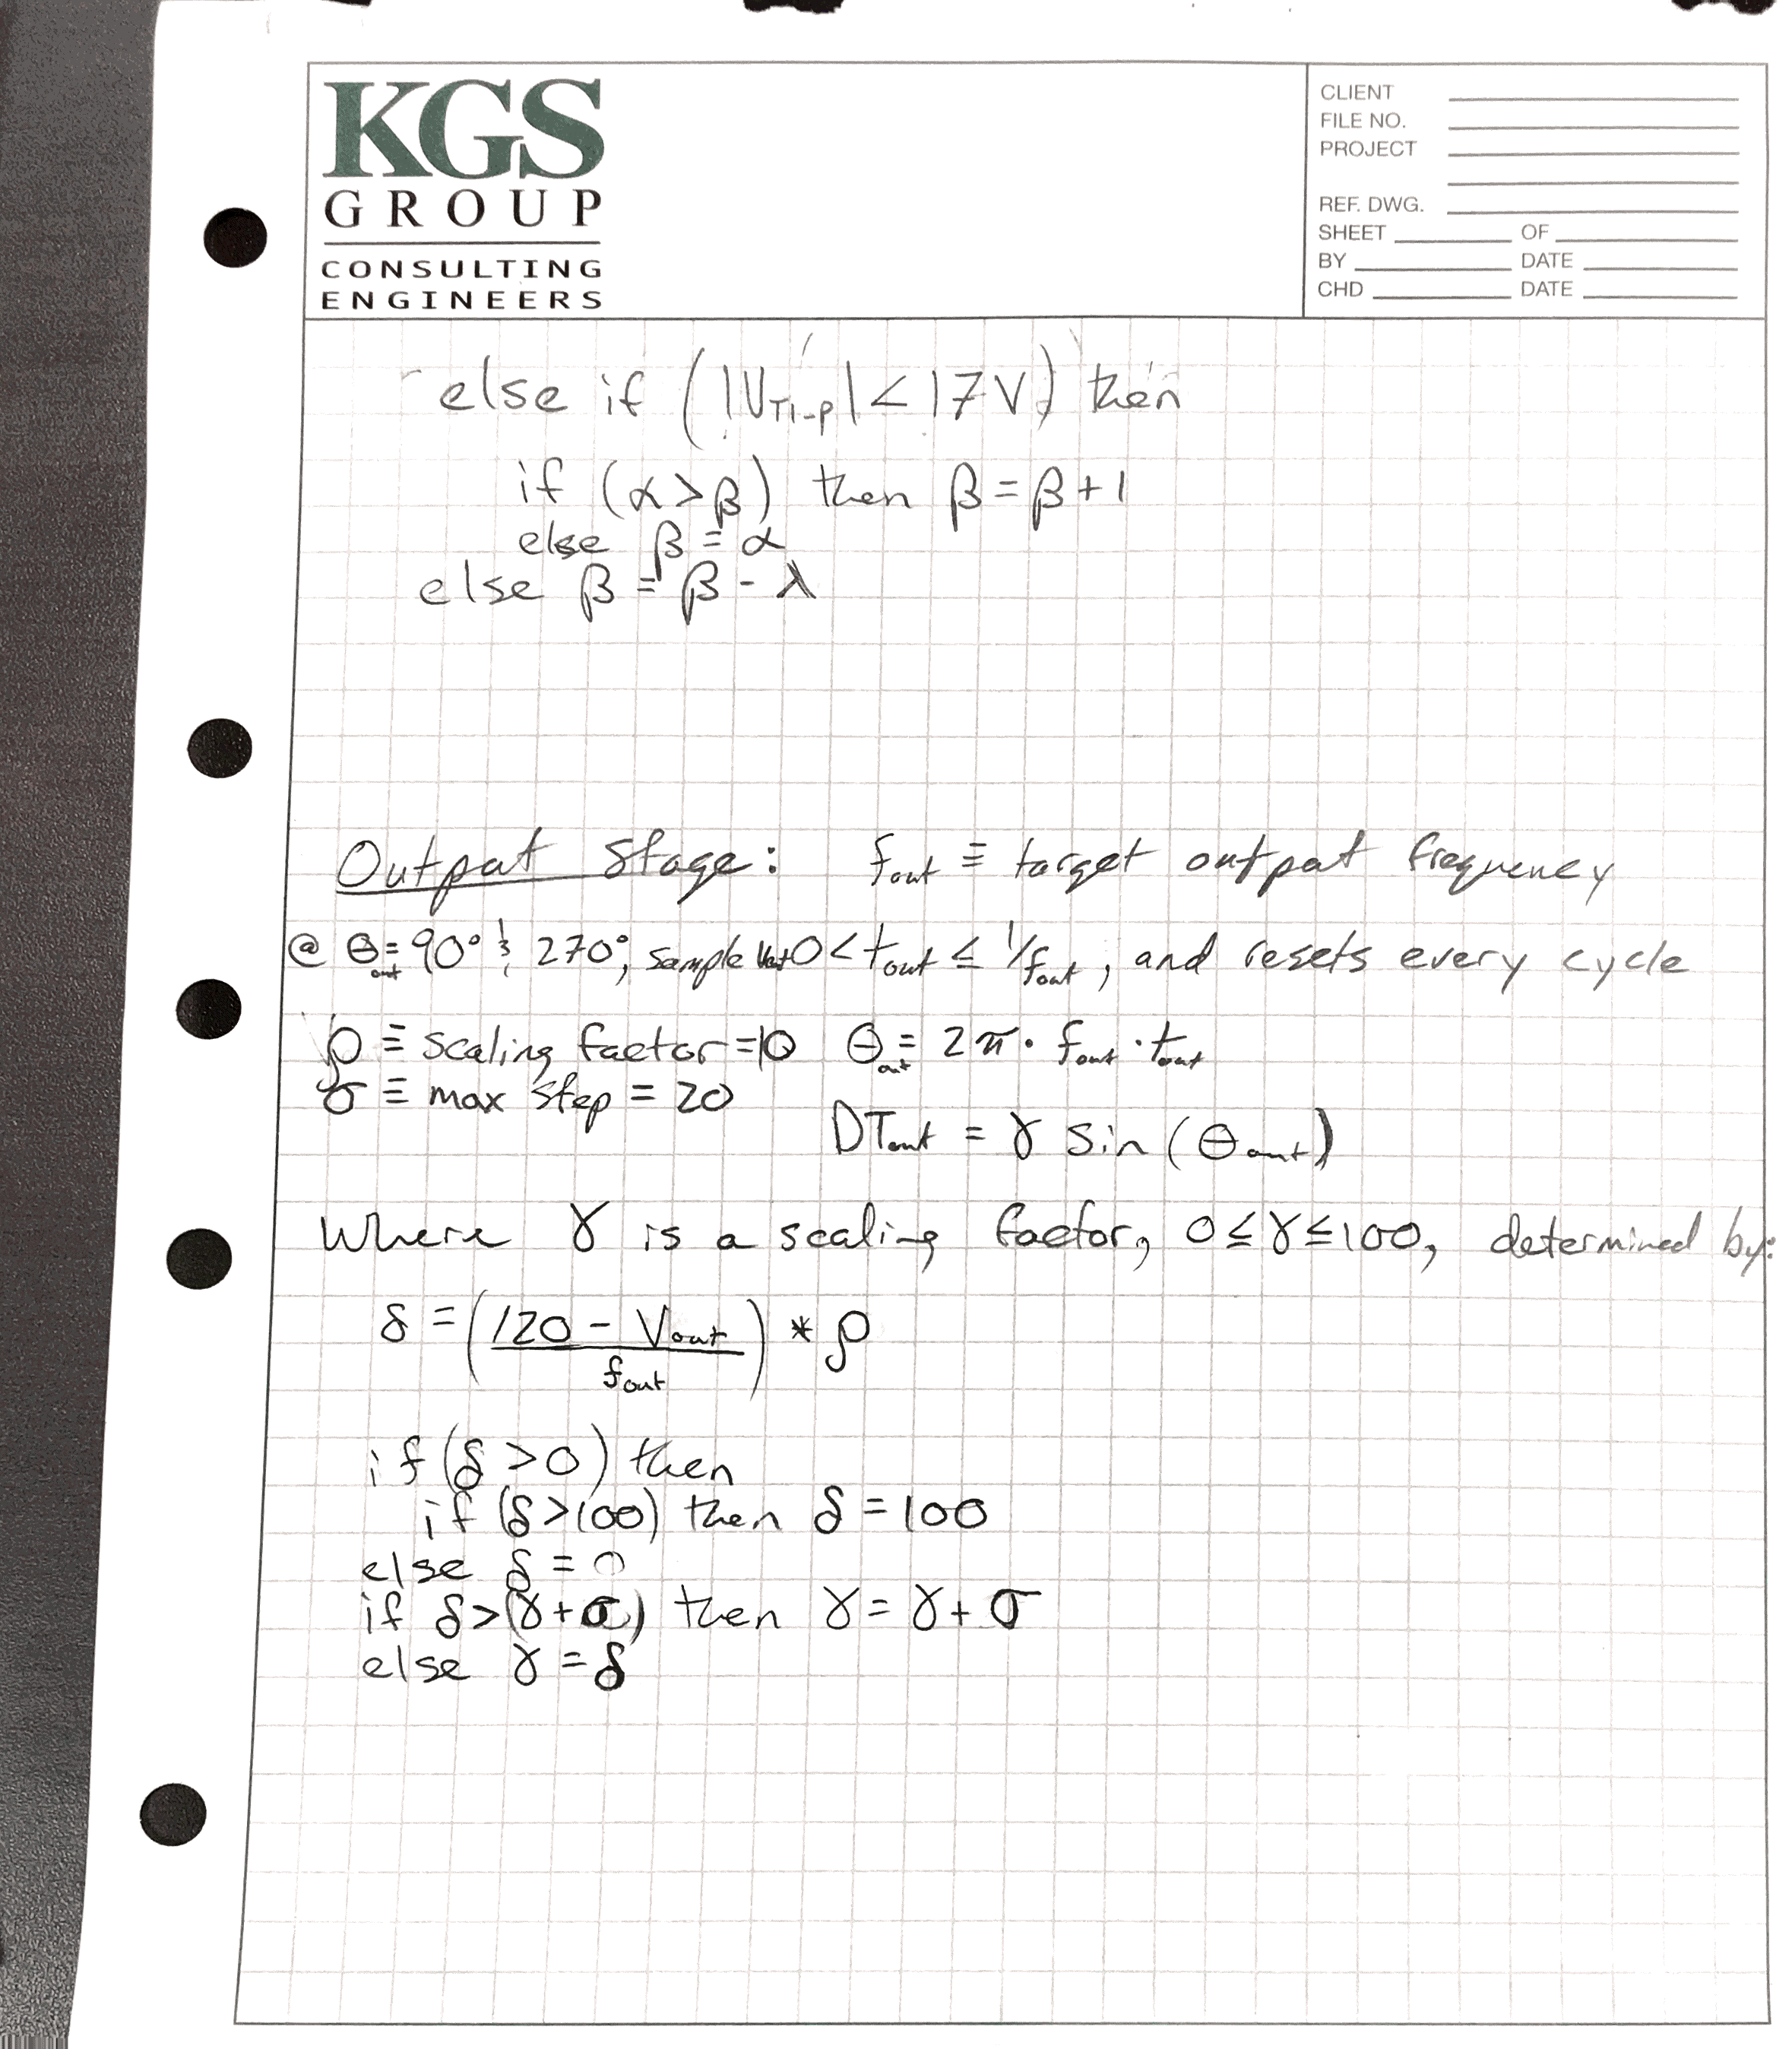 KGS
GROUP
CONSULTING
ENGINEERS
CLIENT
FILE NO.
PROJECT
REF. DWG.
SHEET OF
BY DATE
CHD DATE
else if (|V_T1-p| < 17V) then
if (α > β) then β = β + 1
else β = α
else β = β - λ
Output Stage: f_out ≡ target output frequency
@ θ_out = 90° & 270°, sample V_out 0 < t_out ≤ 1/f_out, and resets every cycle
ρ ≡ scaling factor = 10 θ_out = 2π · f_out · t_out
σ ≡ max step = 20
DT_out = γ sin(θ_out)
Where γ is a scaling factor, 0 ≤ γ ≤ 100, determined by:
δ = ((120 - V_out) / f_out) * ρ
if (δ > 0) then
if (δ > 100) then δ = 100
else δ = 0
if δ > (γ + σ) then γ = γ + σ
else γ = δ